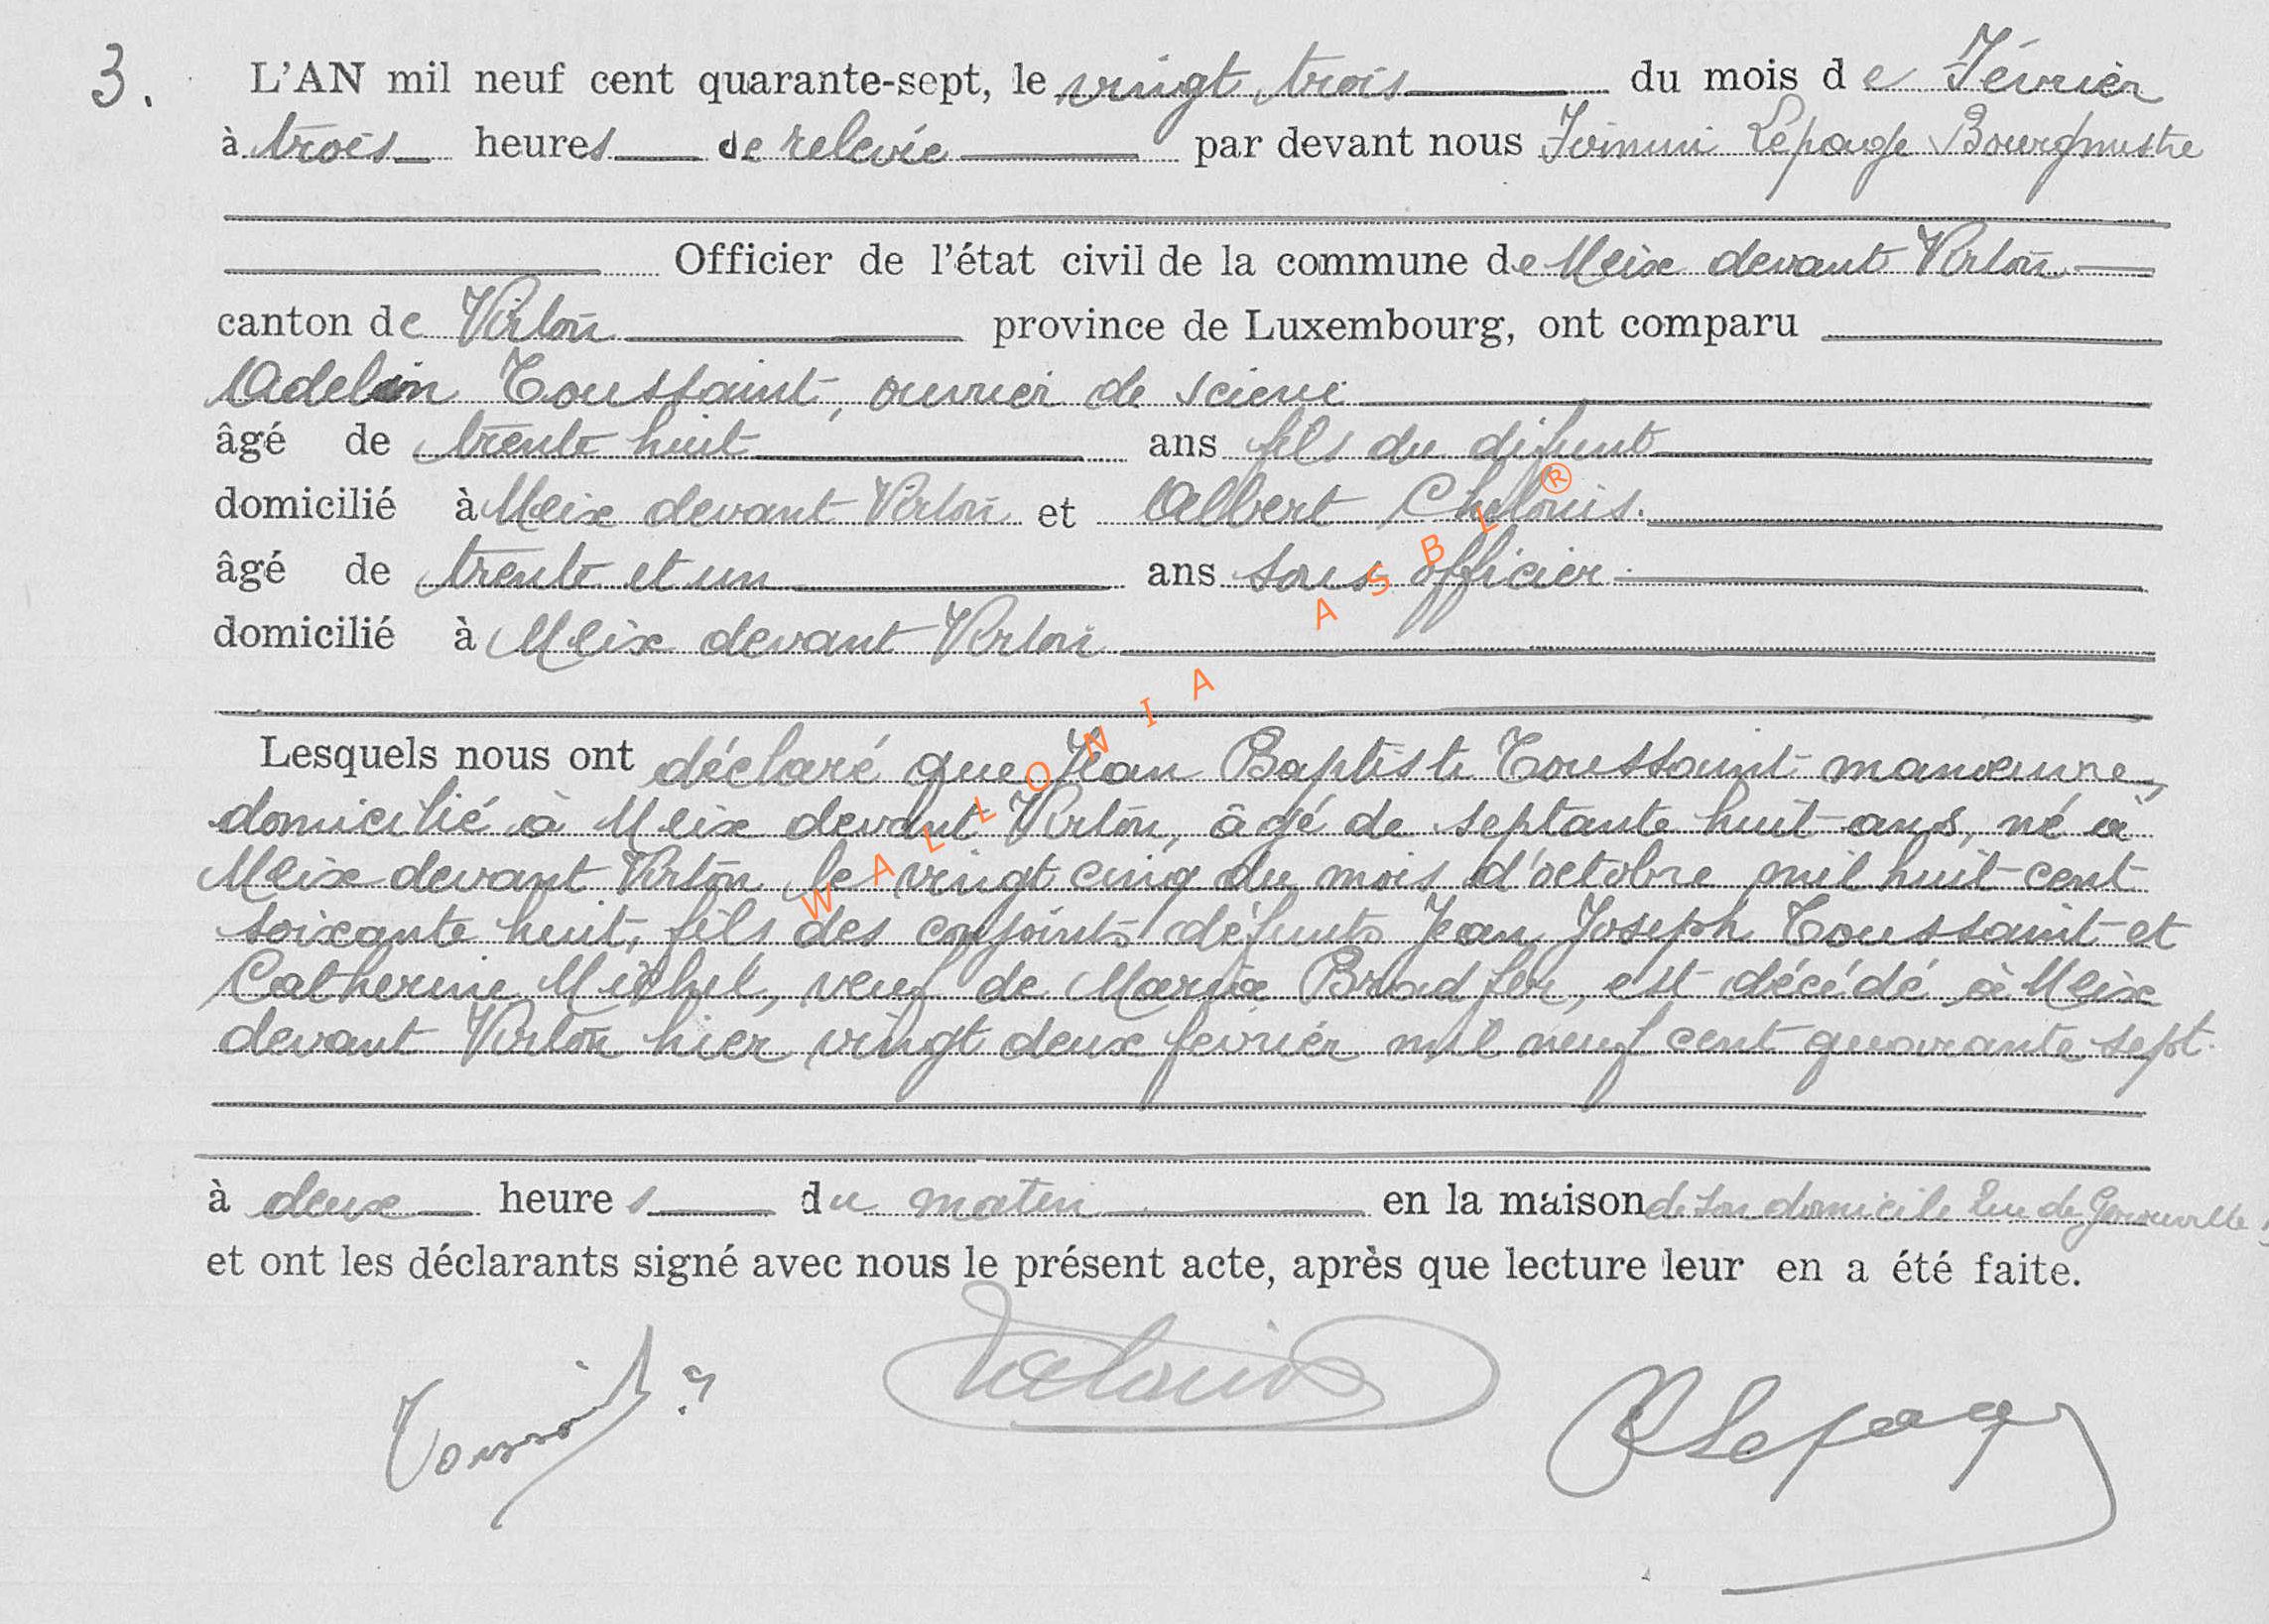 3. L'AN mil neuf cent quarante-sept, le vingt trois du mois de Février
à trois heures de relevée par devant nous Lepage Bourgmestre
Officier de l'état civil de la commune de Meix devant Virton
canton de Virton province de Luxembourg, ont comparu
Adelin Toussaint, ouvrier de scierie
âgé de trente huit ans fils du défunt
domicilié à Meix devant Virton et Albert Chelouis.
âgé de trente et un ans sous officier
domicilié à Meix devant Virton
Lesquels nous ont déclaré que Jean Baptiste Toussaint manœuvre,
domicilié à Meix devant Virton, âgé de septante huit ans, né à
Meix devant Virton le vingt cinq du mois d'octobre mil huit cent
soixante huit, fils des conjoints défunts Jean Joseph Toussaint et
Catherine Michel, veuf de Maria Bradfer, est décédé à Meix
devant Virton hier vingt deux février mil neuf cent quarante sept.
à deux heures du matin en la maison de son domicile Rue de Gérouville
et ont les déclarants signé avec nous le présent acte, après que lecture leur en a été faite.
Toussaint
Lepage
WALLONIA ASBL ®